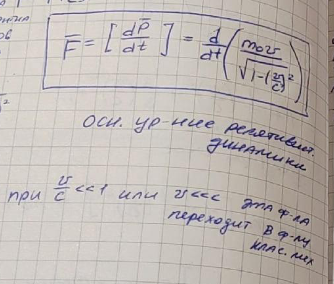 F̅ = [dP̅/dt] = d/dt (m₀v/√(1-(v/c)²))
осн. ур-ние релятивист.
динамики
при v/c <<1 или v<<c эта ф-ла
переходит в ф-лу
клас. мех